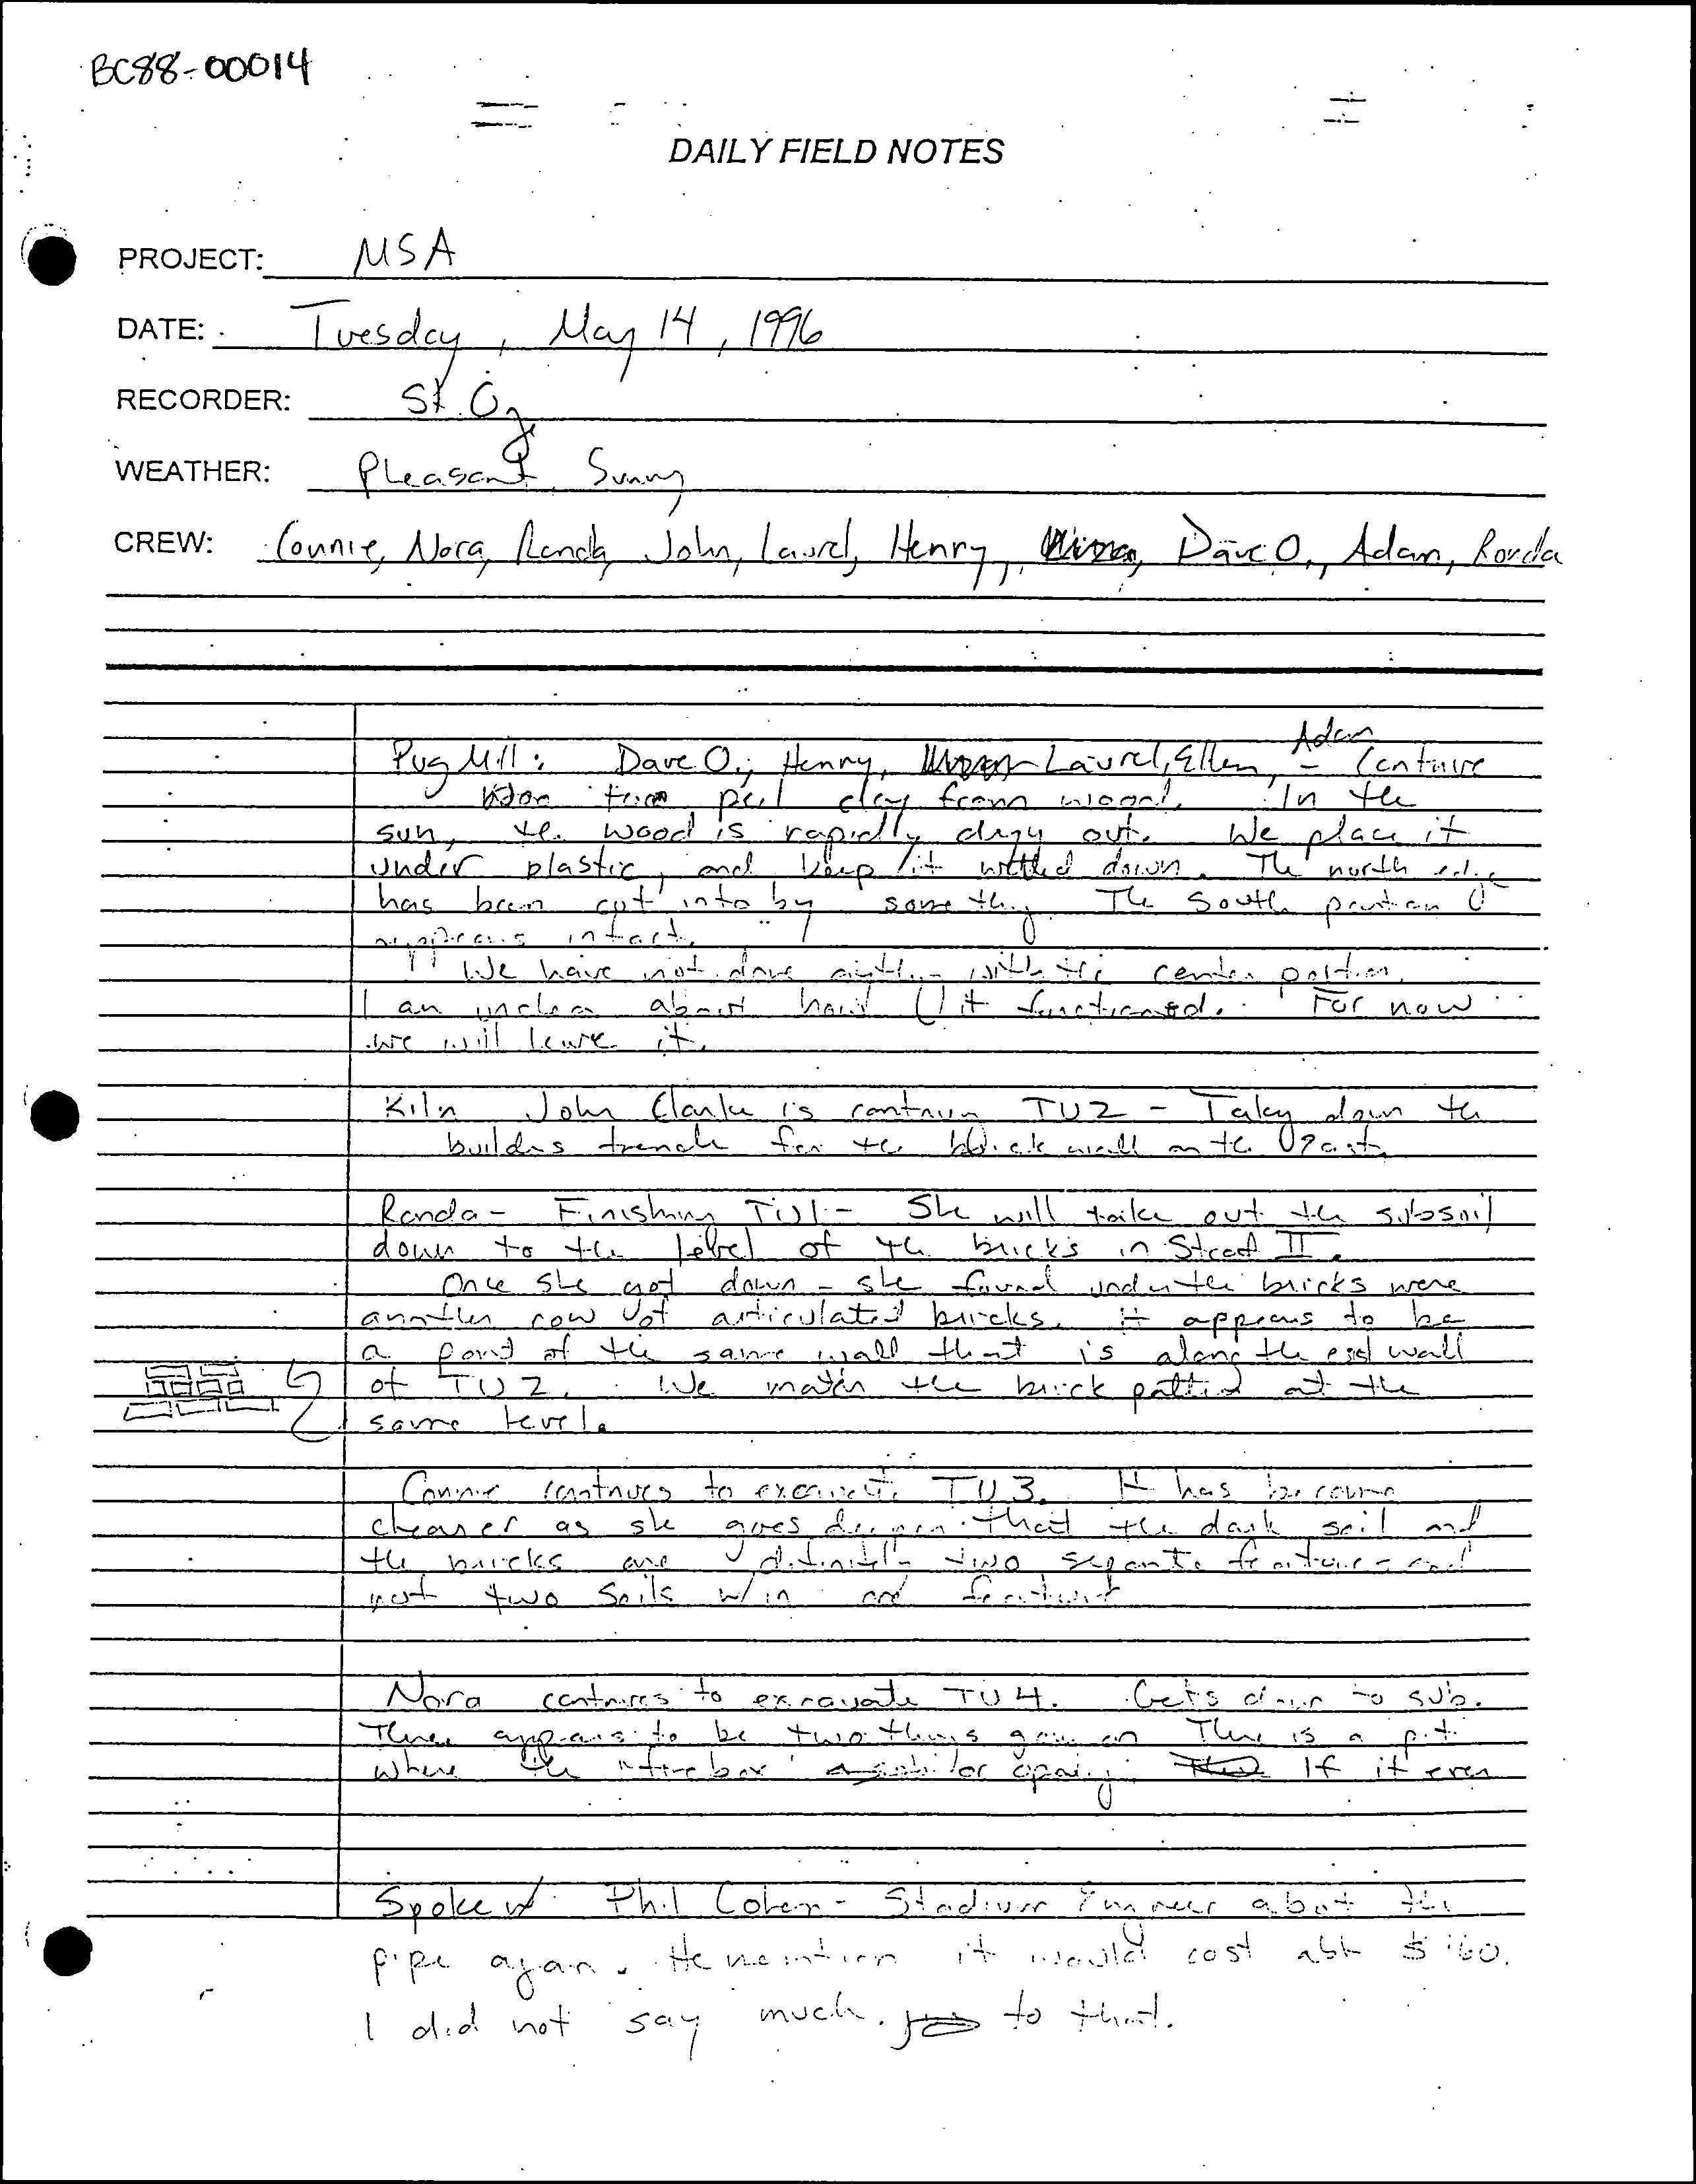 BC88-00014
DAILY FIELD NOTES
PROJECT: MSA
DATE: Tuesday, May 14, 1996
RECORDER:
WEATHER: Pleasant, Sunny
CREW: Connie, Nora, Randa, John, Laurel, Henry, Dave O., Adam, Ronda
Adam
Pug Mill: Dave O., Henry, Laurel, Ellen, - Continue
peel clay from wood. In the
sun, the wood is rapidly dryy out. We place it
under plastic, and keep it wetted down. The north edge
has been cut into by somethg. The South portion
appears intact.
We have not done with the center portion.
I am unclear about how it functioned. For now
we will leave it.
Kiln John Clarke is TU2 - Takg down the
builders trench for the brick wall on the east.
Randa - Finishing TU1 - She will take out the subsoil
down to the level of the bricks in Strat II.
Once she got down - she found under the bricks were
another row of articulated bricks. it appears to be
a part of the same wall that is along the east wall
of TU2. We match the brick pattern at the
same level.
Connie continues to excavate TU3. It has become
clearer as she goes deeper that the dark soil and
the bricks are definitely two separate features and
not two soils w/in one feature
Nora continues to excavate TU4. Gets down to sub.
There appears to be two things going on There is a pit
where the "firebox" or If it ever
Spoke w/ Phil Cohen - Stadium Engineer about the
pipe again. He mention it would cost abt $160.
I did not say much. to that.